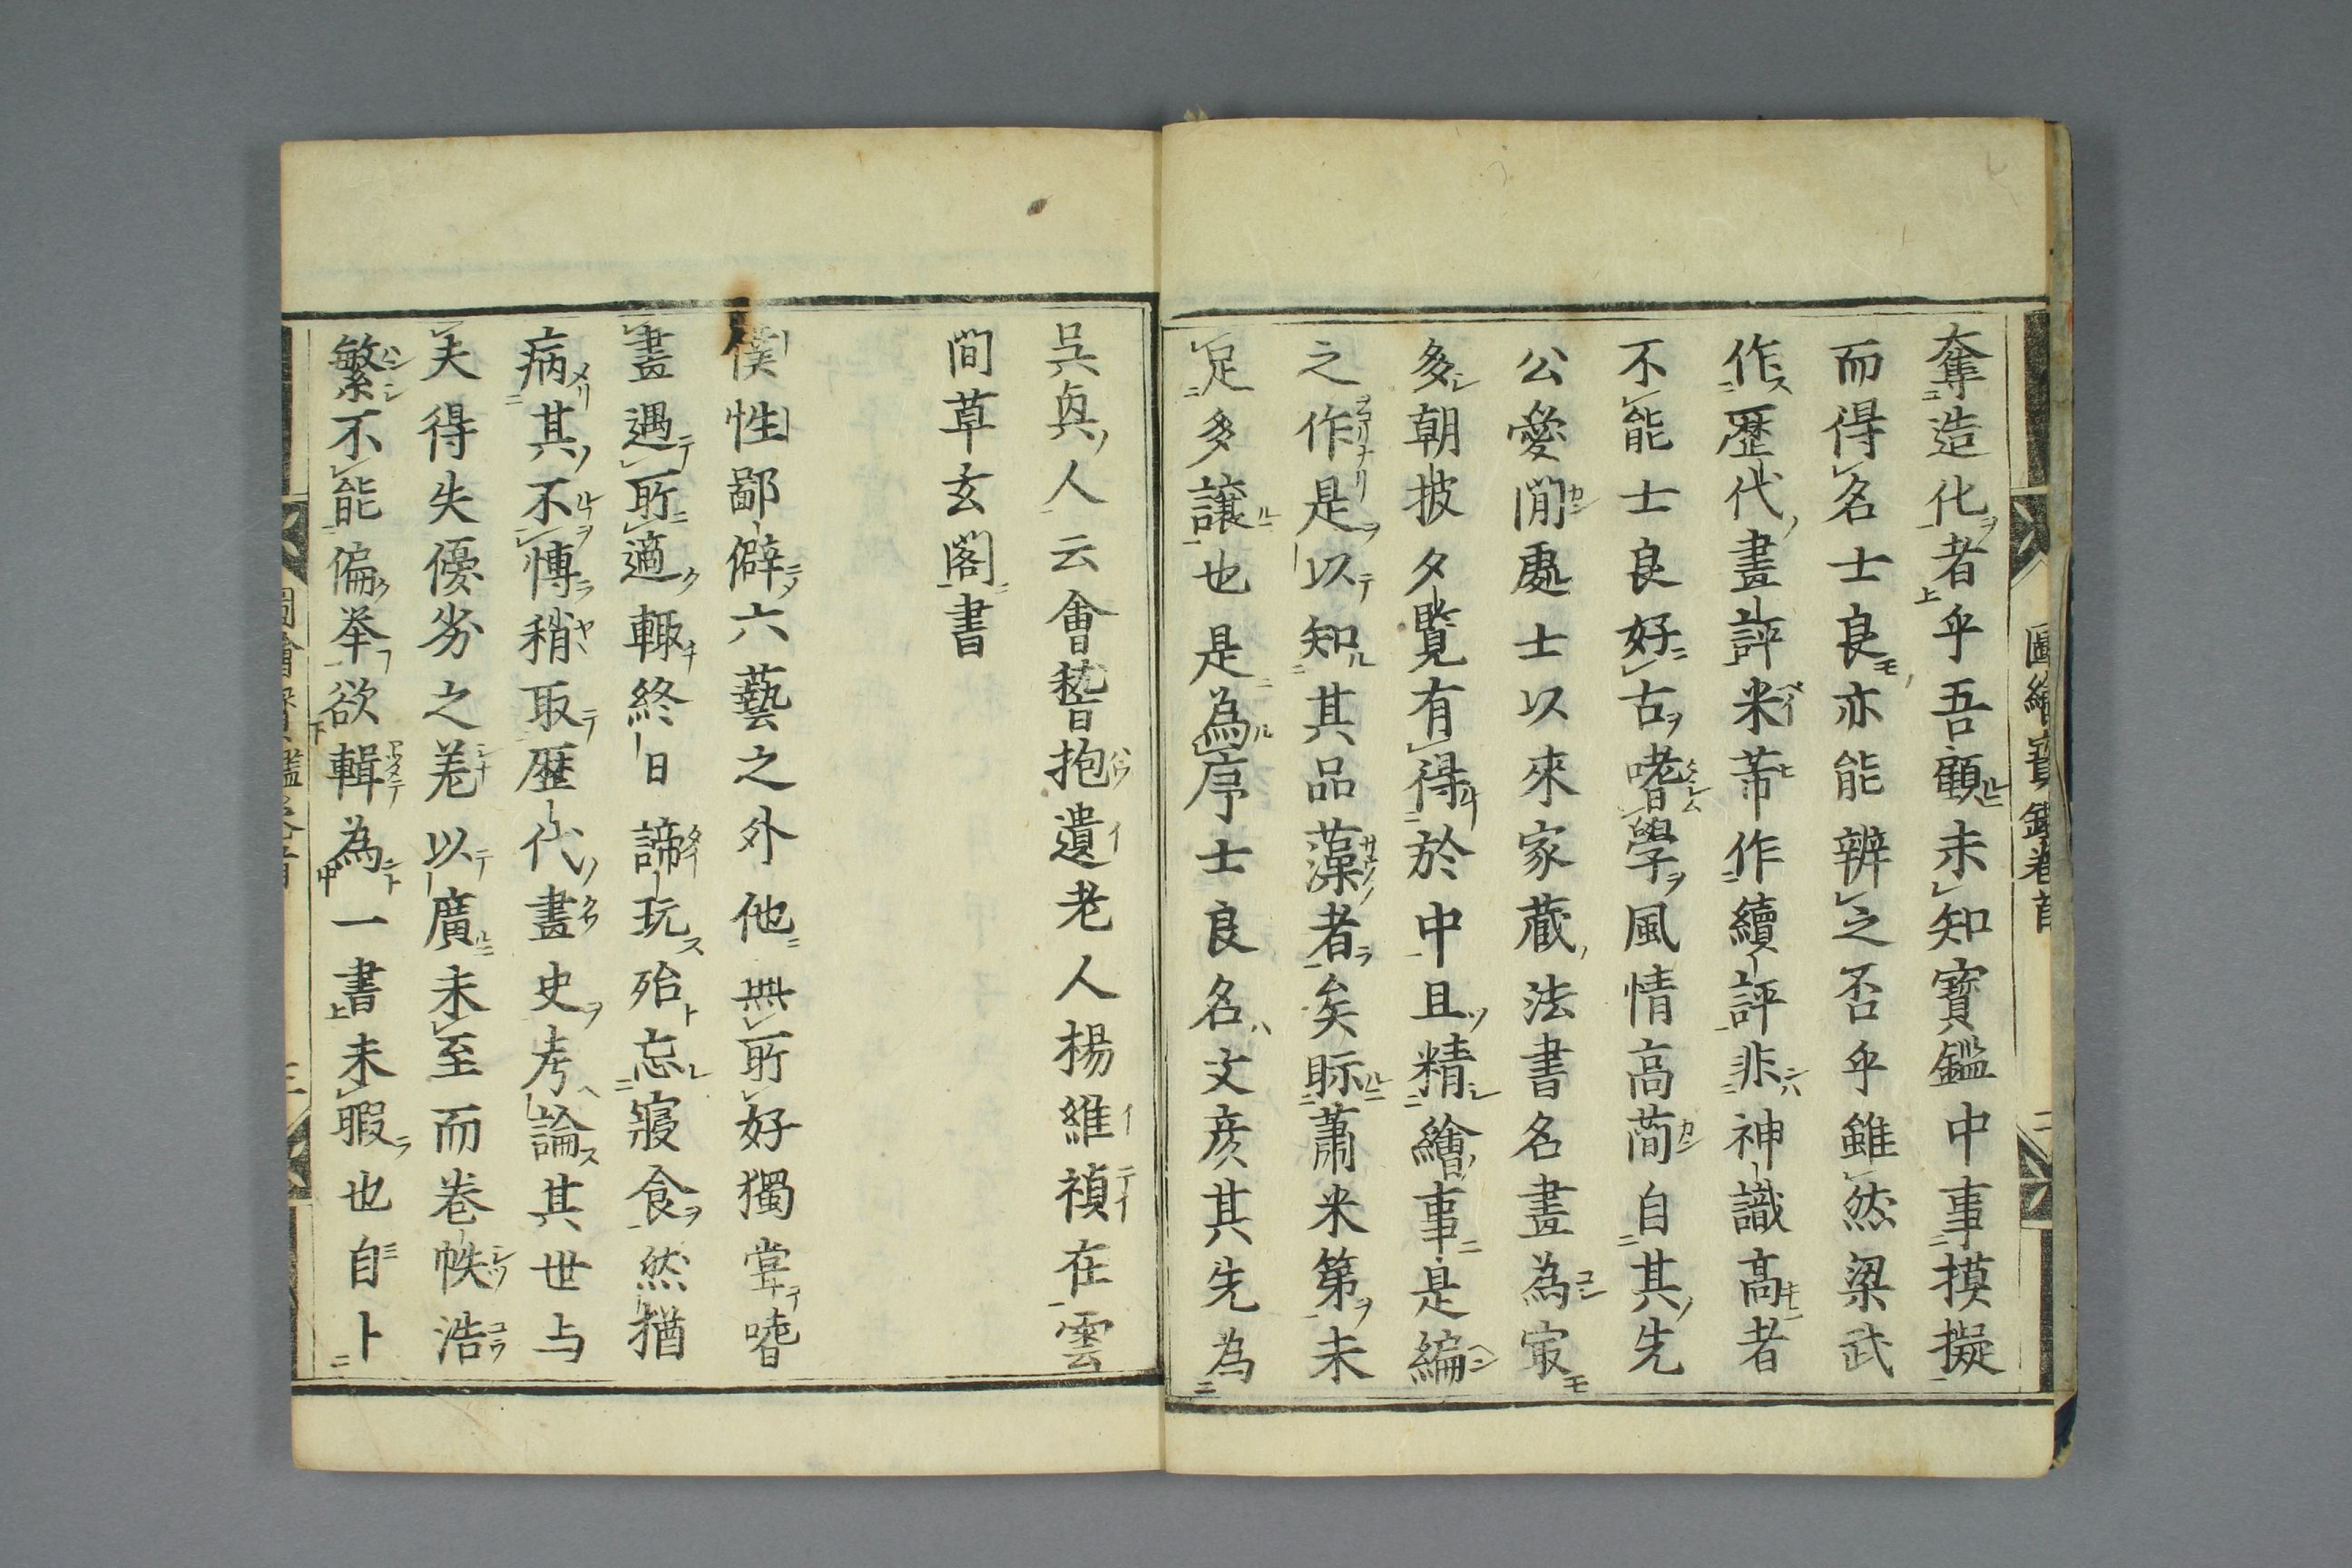 圖繪寶鑑卷首 二
奪造化者乎吾顧未知寶鑑中事摸擬
而得名士良亦能辨之否乎雖然梁武
作歴代畫評米芾作續評非神識高者
不能士良好古嗜學風情高蕳自其先
公愛閒處士以來家蔵法書名畫為㝡
多朝披夕覽有得於中且精繪事是編
之作是以知其品藻者矣眎蕭米第未
足多讓也是為序士良名文彦其先為
吳㒷人云會嵇抱遺老人楊維禎在雲
間草玄閣書
僕性鄙僻六藝之外他無所好獨嘗嗜
畫遇所適輙終日諦玩殆忘寢食然猶
病其不愽稍取歴代畫史考論其世与
夫得失優劣之差以廣未至而卷帙浩
繁不能偏举欲輯為一書未暇也自卜
圖繪寶鑑卷首 三